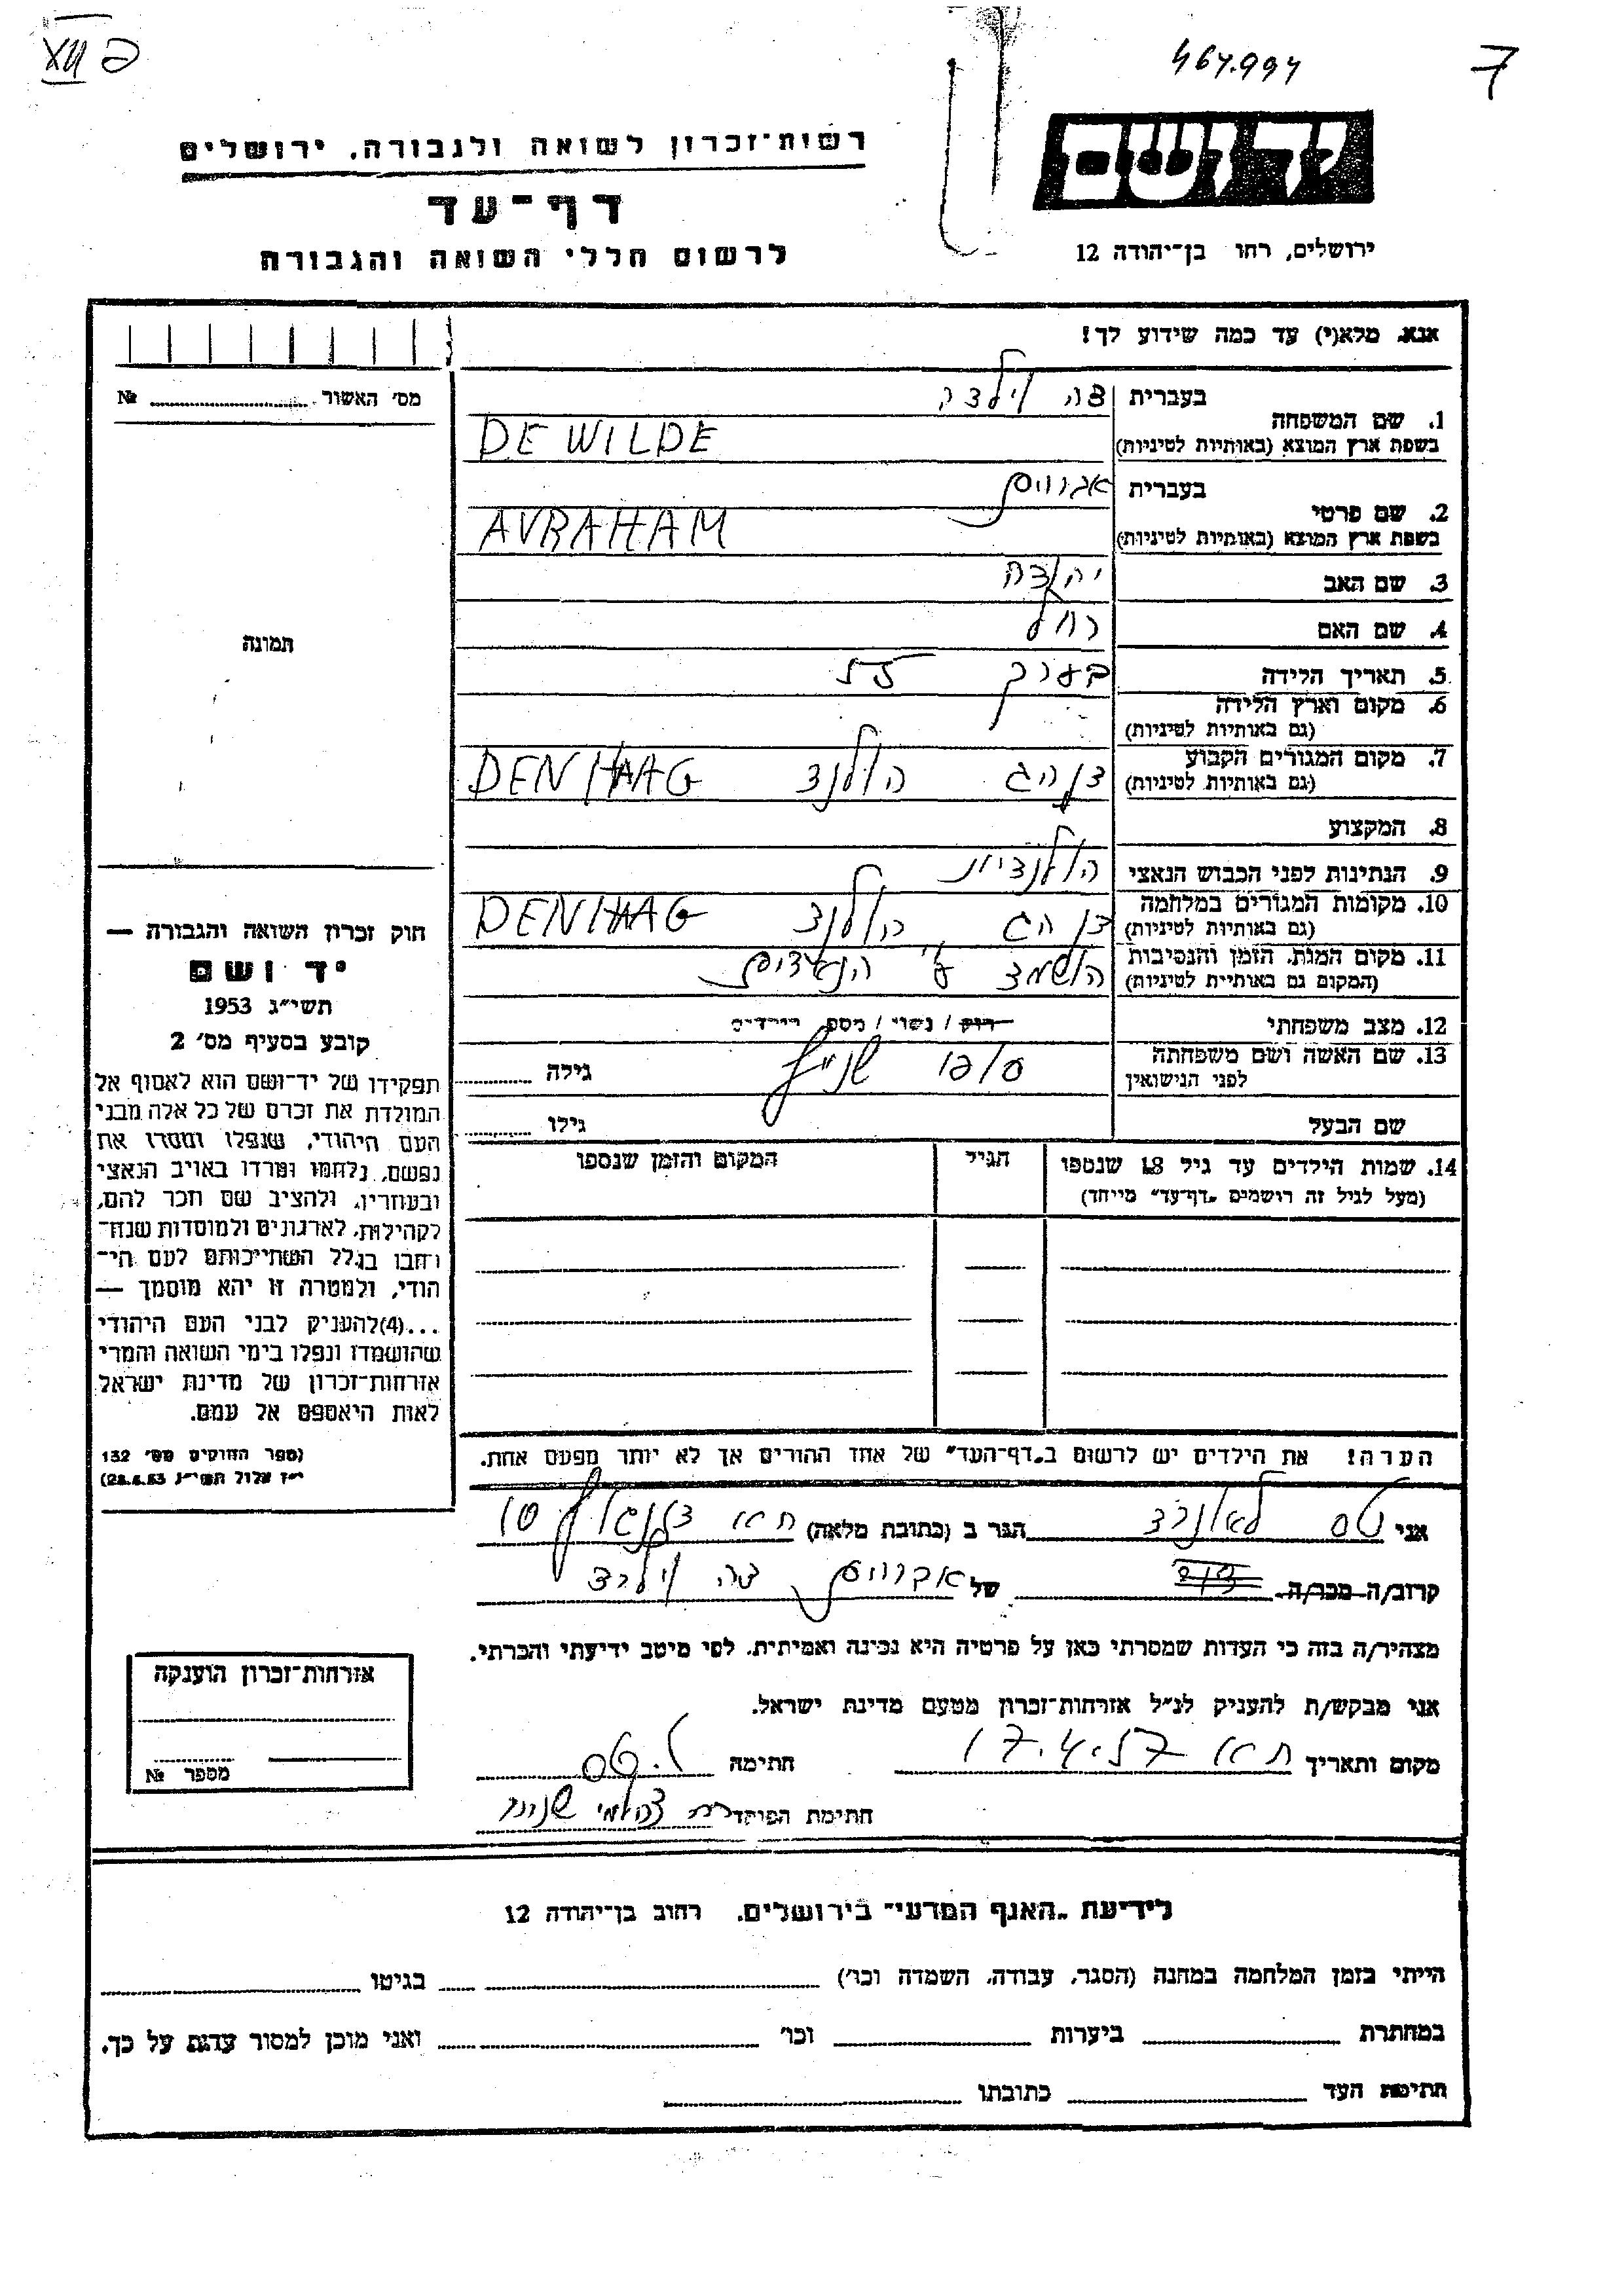 XII 6
467.994
7
יד ושם
רשות־זכרון לשואה ולגבורה, ירושלים
דף־עד
לרשום חללי השואה והגבורה
ירושלים, רחו בן־יהודה 12
אנא, מלא(י) עד כמה שידוע לך!
מס׳ האשור № 
בעברית דה וילדה
1. שם המשפחה
בשפת ארץ המוצא (באותיות לטיניות) DE WILDE
בעברית אברהם
2. שם פרטי
בשפת ארץ המוצא (באותיות לטיניות) AVRAHAM
3. שם האב יהודה
4. שם האם רחל
5. תאריך הלידה בערך
6. מקום וארץ הלידה
(גם באותיות לטיניות)
7. מקום המגורים הקבוע דן הג הולנד DEN HAAG
(גם באותיות לטיניות)
8. המקצוע
9. הנתינות לפני הכבוש הנאצי הולנדית
10. מקומות המגורים במלחמה דן הג הולנד DEN HAAG
(גם באותיות לטיניות)
11. מקום המות, הזמן והנסיבות הושמד ע״י הנאצים
(המקום גם באותיית לטיניות)
12. מצב משפחתי רוק / נשוי / מספ. הילדים
13. שם האשה ושם משפחתה גילה
לפני הנישואין
שם הבעל גילו
14. שמות הילדים עד גיל 18 שנספו הגיל המקום והזמן שנספו
(מעל לגיל זה רושמים „דף־עד״ מייחד)
הערה! את הילדים יש לרשום ב„דף־העד״ של אחד ההורים אך לא יותר מפעם אחת.
תמונה
חוק זכרון השואה והגבורה —
יד ושם
תשי״ג 1953
קובע בסעיף מס׳ 2
תפקידו של יד־ושם הוא לאסוף אל
המולדת את זכרם של כל אלה מבני
העם היהודי, שנפלו ומסרו את
נפשם, נלחמו ומרדו באויב הנאצי
ובעוזריו, ולהציב שם וזכר להם,
לקהילות, לארגונים ולמוסדות שנח־
רחבו בגלל השתייכותם לעם הי־
הודי, ולמטרה זו יהא מוסמך —
...(4)להעניק לבני העם היהודי
שהושמדו ונפלו בימי השואה והמרי
אזרחות־זכרון של מדינת ישראל
לאות היאספם אל עמם.
(ספר החוקים מס׳ 132
י״ז אלול תשי״ג 28.8.53)
אני טס לאונרד הגר ב (כתובת מלאה) ת״א 10
קרוב/ה מכר/ה של אברהם דה וילדה
מצהיר/ה בזה כי העדות שמסרתי כאן על פרטיה היא נכונה ואמיתית, לפי מיטב ידיעתי והכרתי.
אני מבקש/ת להעניק לנ״ל אזרחות־זכרון מטעם מדינת ישראל.
מקום ותאריך ת״א 17.4.57 חתימה ל. טס
חתימת הפוקד
אזרחות־זכרון הוענקה
מספר №
לידיעת „האגף המדעי״ בירושלים, רחוב בן־יהודה 12
הייתי בזמן המלחמה במחנה (הסגר, עבודה, השמדה וכו׳) בגיטו
במחתרת ביערות וכו׳ ואני מוכן למסור עדות על כך.
חתימת העד כתובתו